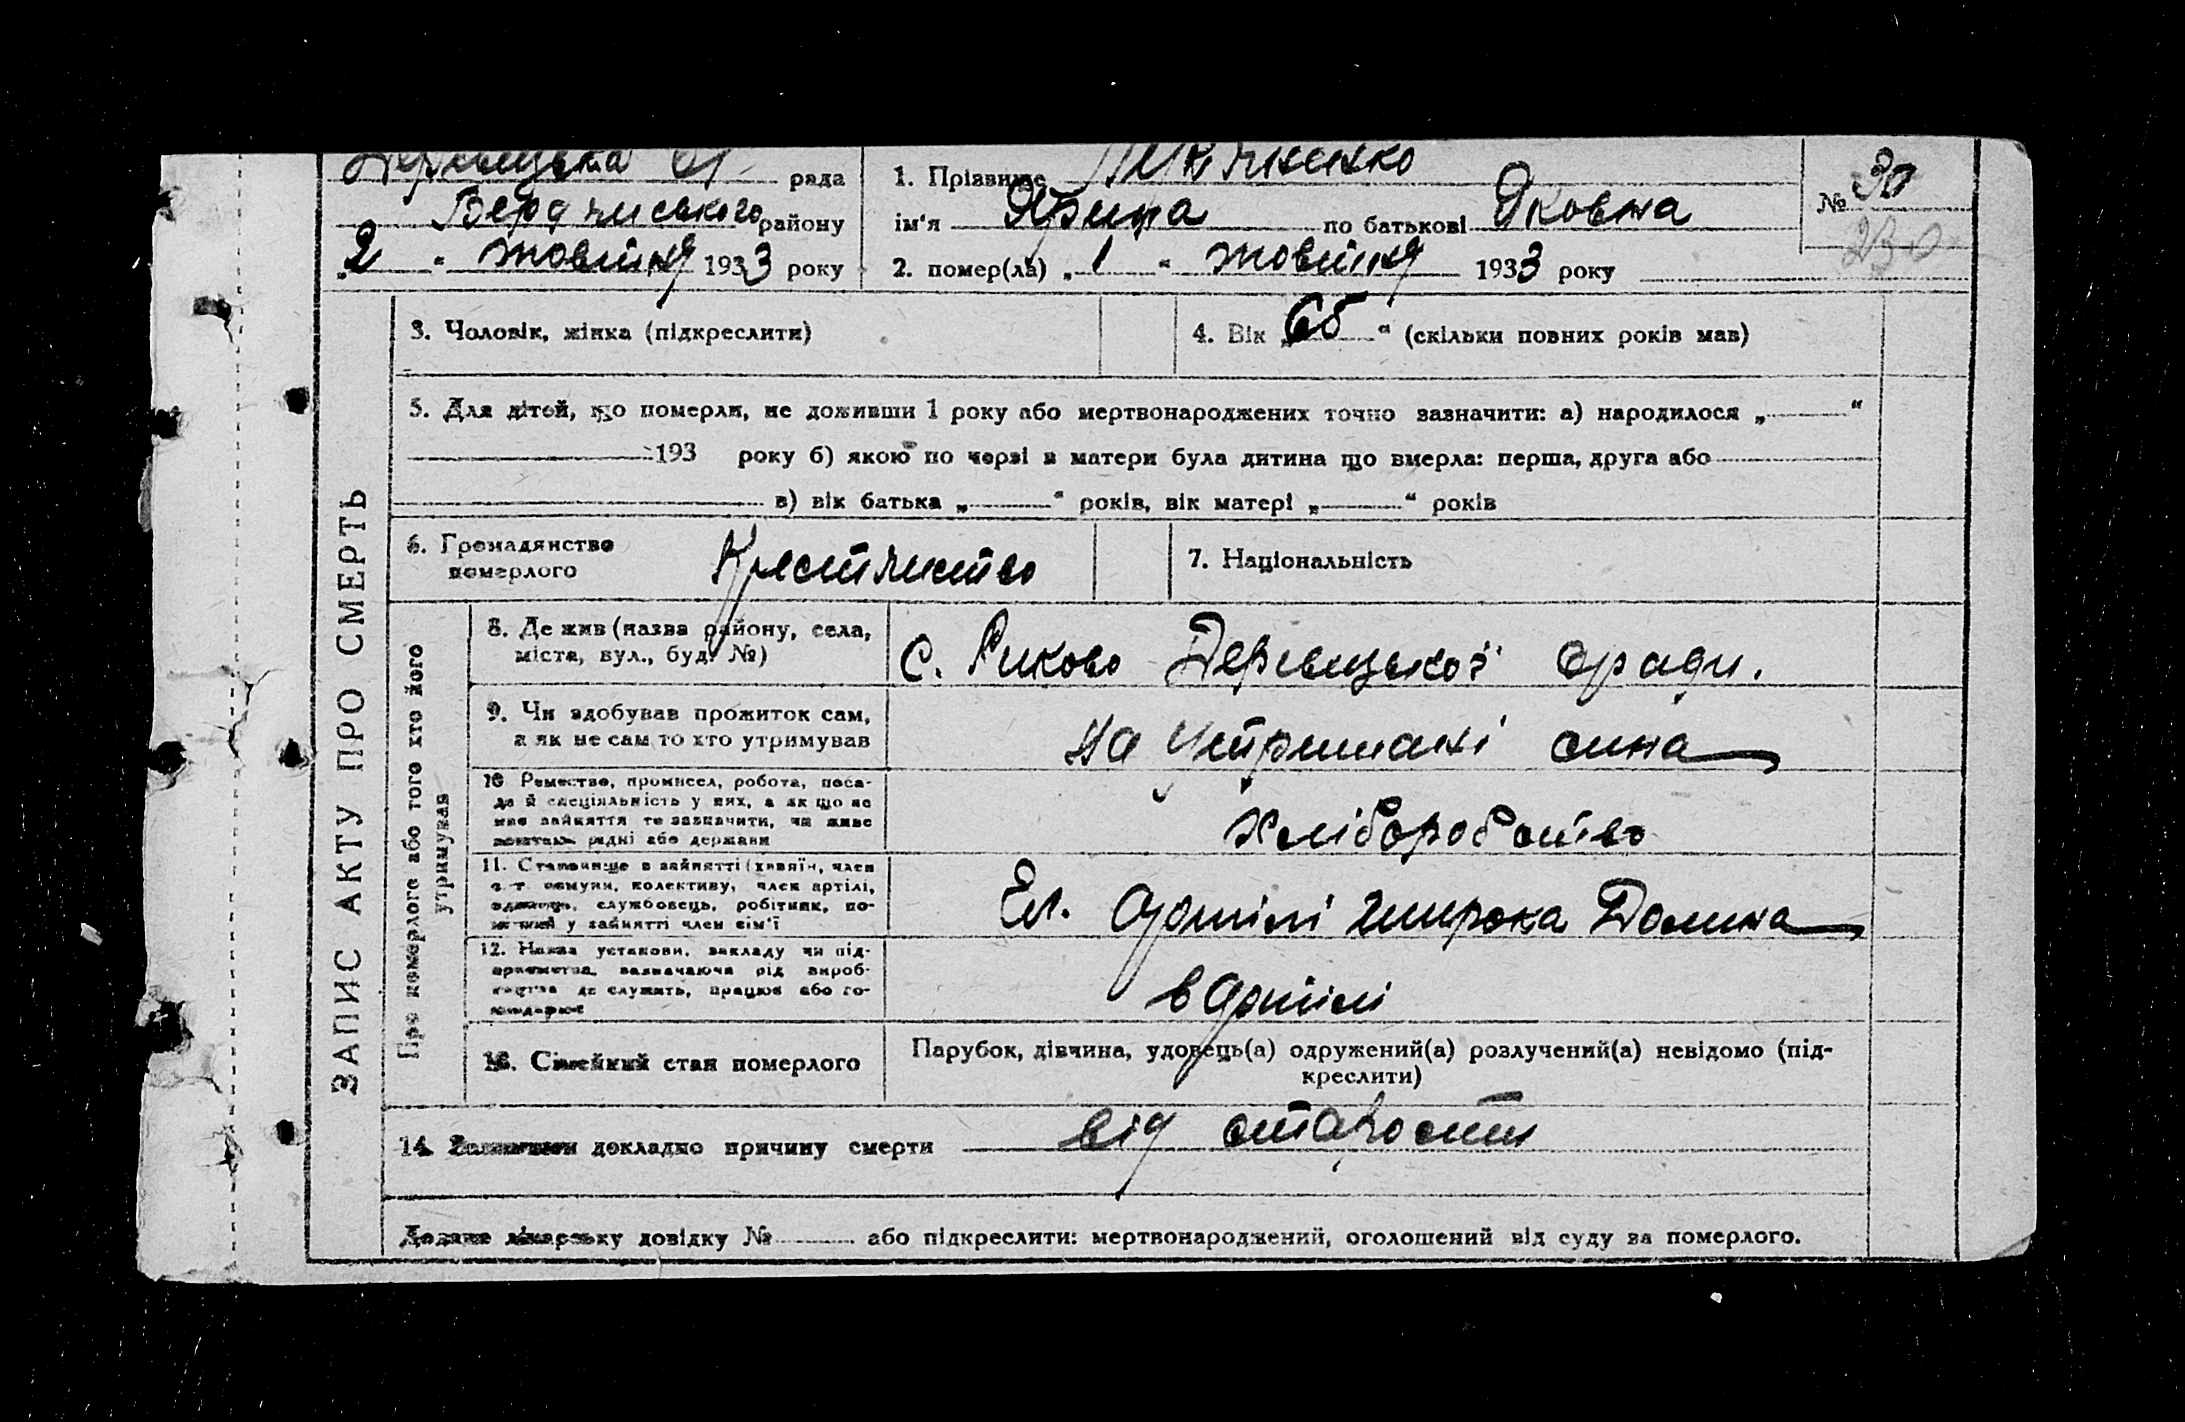 рада
1. Прізвище
№ 30
Бердянського району
ім'я Ярина по батькові Яковна
230
„2“ жовтня 1933 року
2. помер(ла) „1“ жовтня 1933 року
ЗАПИС АКТУ ПРО СМЕРТЬ
3. Чоловік, жінка (підкреслити)
4. Вік „65“ (скільки повних років мав)
5. Для дітей, що померли, не доживши 1 року або мертвонароджених точно зазначити: а) народилося „ “
193 року б) якою по черзі в матери була дитина що вмерла: перша, друга або
в) вік батька „ “ років, вік матері „ “ років
6. Громадянство
померлого
7. Національність
Про померлого або того хто його
утримував
8. Де жив (назва району, села,
міста, вул., буд. №)
с. Риково Деревецької с/ради.
9. Чи здобував прожиток сам,
а як не сам то хто утримував
на утриманні сина
10 Ремество, промисел, робота, поса-
да й спеціяльність у них, а як що не
має зайняття то зазначити, чи живе
коштом рідні або держави
Хліборобство
11. Становище в зайнятті (хазяїн, член
с.-г. комуни, колективу, член артілі,
одинець, службовець, робітник, по-
у зайнятті член сім'ї
Чл. Артілі Широка Долина
12. Назва установи, закладу чи під-
приємства, зазначаючи рід вироб-
ництва де служить, працює або го-
сподарює
в Артілі
13. Сімейний стан померлого
Парубок, дівчина, удовець(а) одружений(а) розлучений(а) невідомо (під-
креслити)
14. Зазначити докладно причину смерти від старости
Додано лікарську довідку № або підкреслити: мертвонароджений, оголошений від суду за померлого.